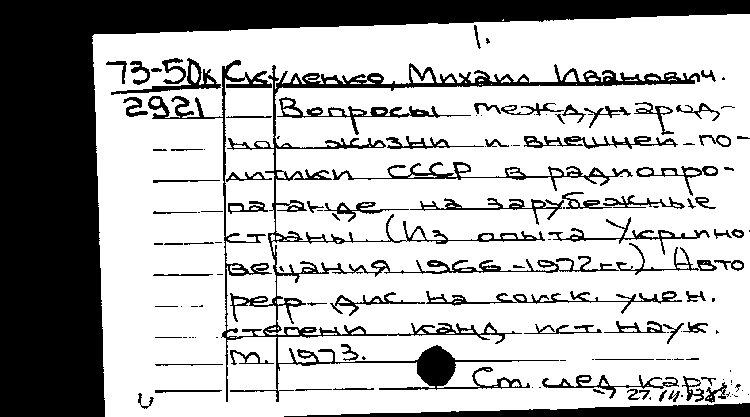 1.
73-50к Скуленко, Михаил Иванович.
2921 Вопросы международ-
ной жизни и внешней по-
литики СССР в радиопро-
паганде на зарубежные
страны. (Из опыта Укр. ино-
вещания 1966-1972 гг.). Авто
реф. дис. на соиск. учен.
степени канд. ист. наук.
М. 1973.
См. след. карт.